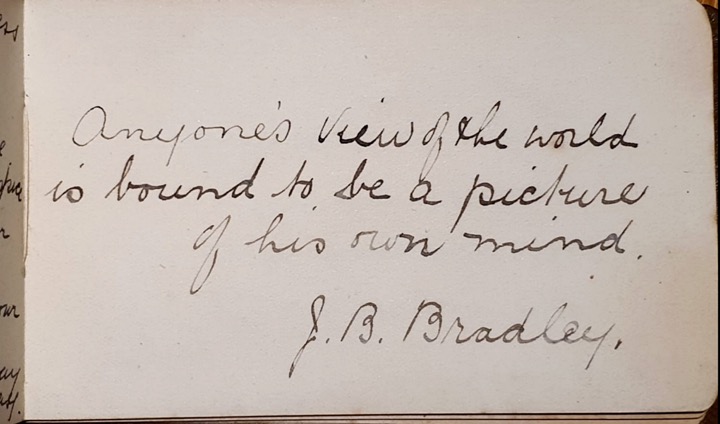 Anyone's view of the world
is bound to be a picture
of his own mind.
J. B. Bradley.